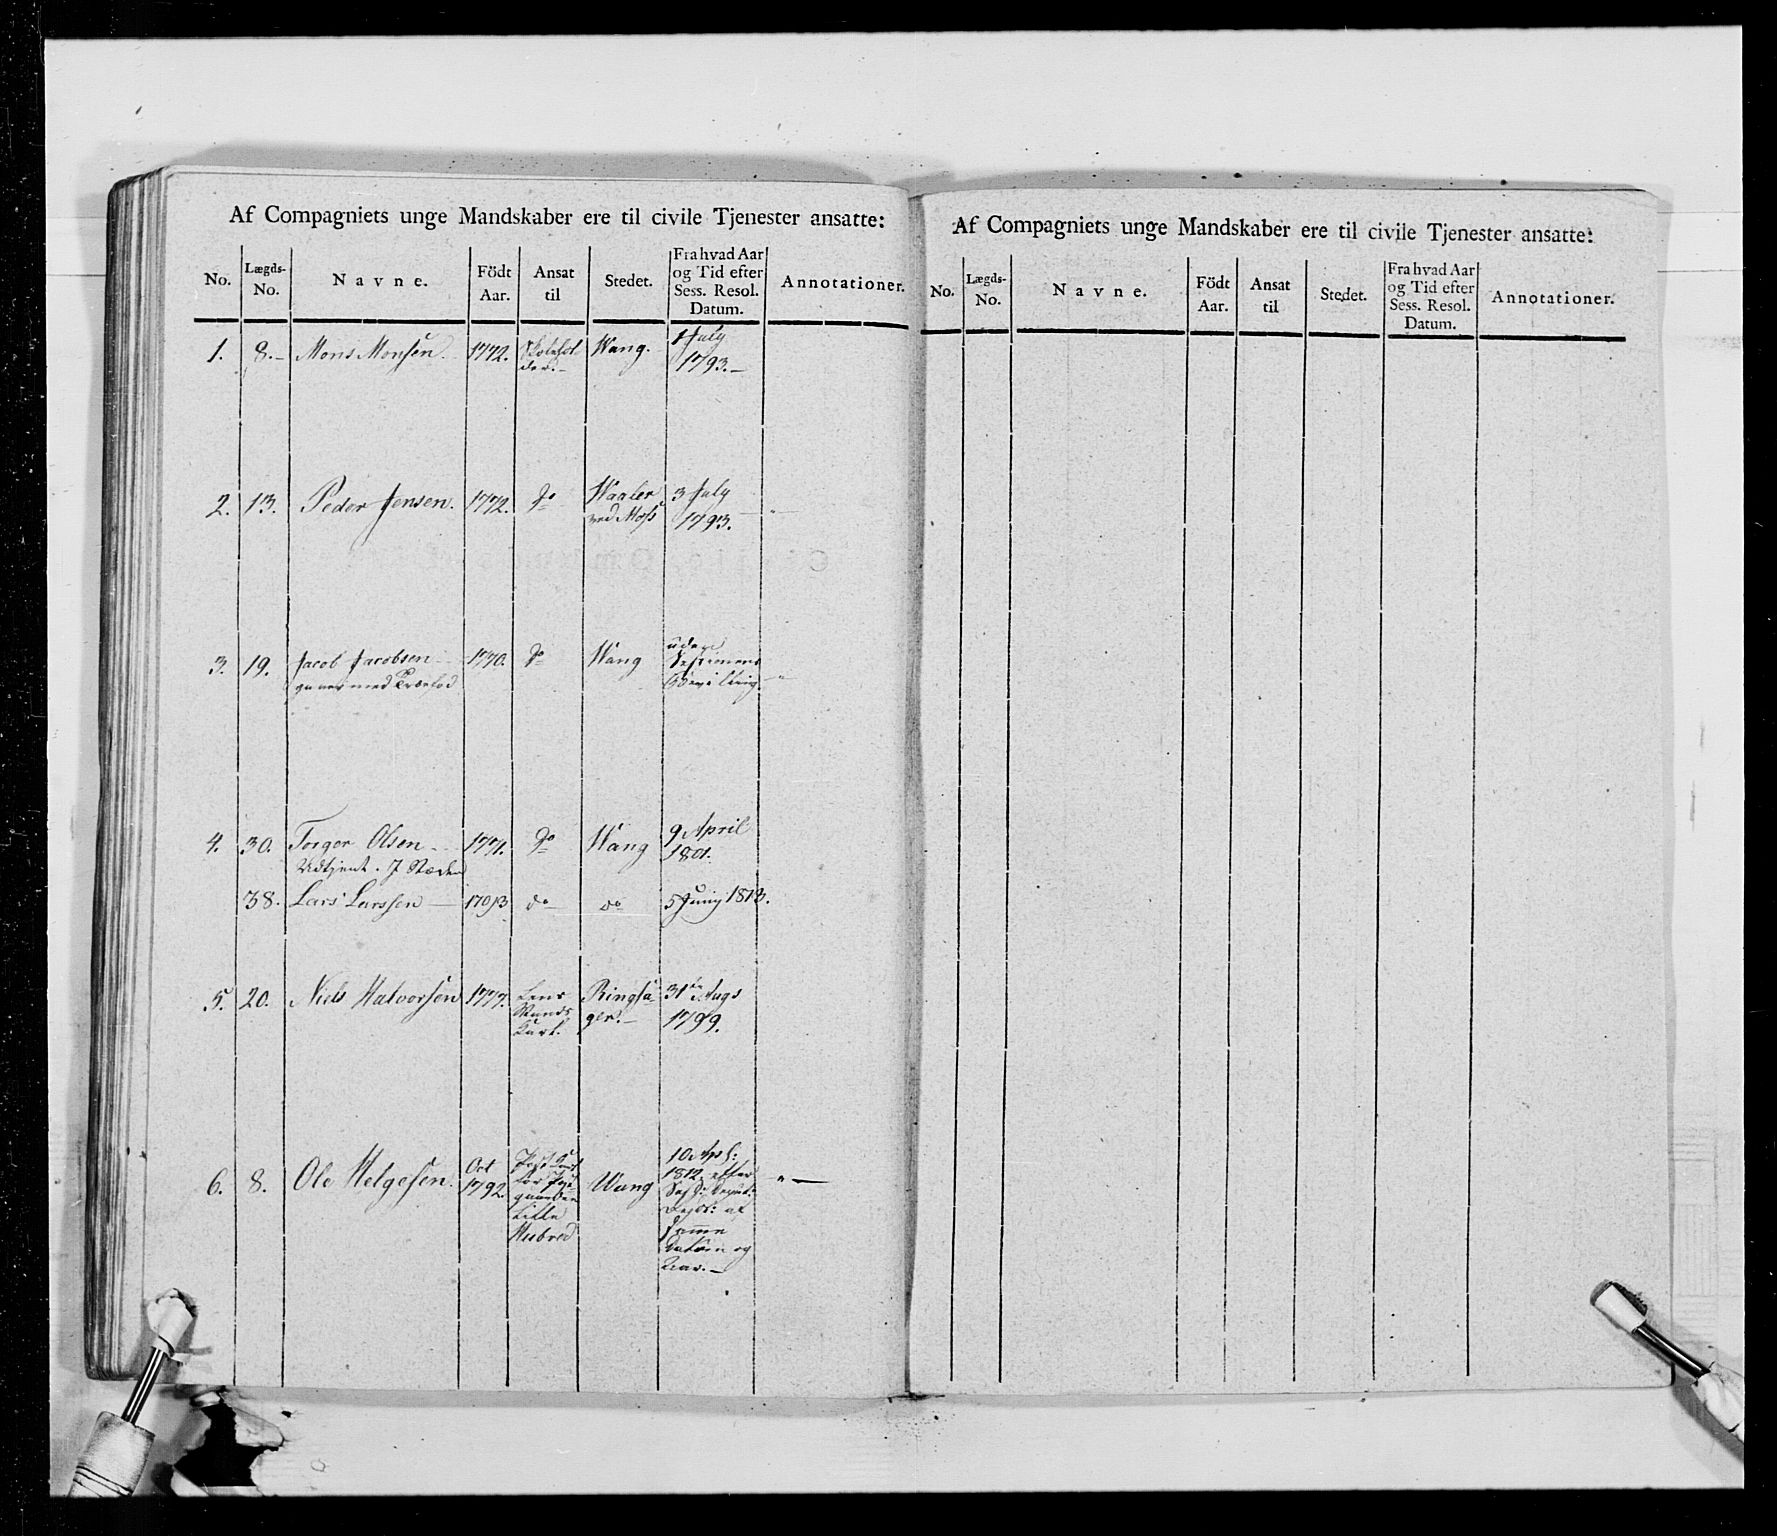 Af Compagniets unge Mandskaber ere til civile Tjenester ansatte:
No. Lægds-No. Navne. Födt Aar. Ansat til Stedet. Fra hvad Aar og Tid efter Sess. Resol. Datum. Annotationer.
1. 8.- Mons Monsen. 1772. Skolehol- Wang. 1 July
der.- 1793.-
2. 13. Peder Jensen. 1772. do Waaler 3 July
ved Moss 1793. "
3. 19. Jacob Jacobsen 1770. do Wang uden
gaaer med Træefod Sessionens
Bevilling. "
4. 30. Torger Olsen 1771. do Wang 9 April
Udtjent. I Stæden 1801.
38. Lars Larssen 1793 do do 5 Juny 1813.
5. 20. Niels Halvorsen 1777. Lens Ringsa- 31te Augs
Mands ger.- 1799.
Karl.
6. 8. Ole Helgesen. Oct 1792. Wang 10 Apl: "
gaarden 1812 efter
Lille Sess: Deput:
Hubred Resol: af
samme
Datum og
Aar.-
Af Compagniets unge Mandskaber ere til civile Tjenester ansatte:
No. Lægds-No. Navne. Födt Aar. Ansat til Stedet. Fra hvad Aar og Tid efter Sess. Resol. Datum. Annotationer.